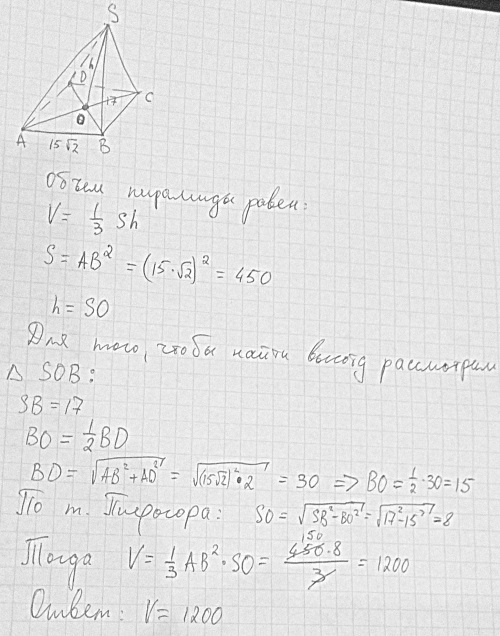 S
h
D
17
C
O
A
15√2
B
Объем пирамиды равен:
V = 1/3 Sh
S = AB² = (15·√2)² = 450
h = SO
Для того, чтобы найти высоту рассмотрим
Δ SOB:
SB = 17
BO = 1/2 BD
BD = √(AB²+AD²) = √((15√2)²·2) = 30 => BO = 1/2·30 = 15
По т. Пифагора: SO = √(SB²-BO²) = √(17²-15²) = 8
Тогда V = 1/3 AB²·SO = 450·8/3 = 1200
150
Ответ: V = 1200